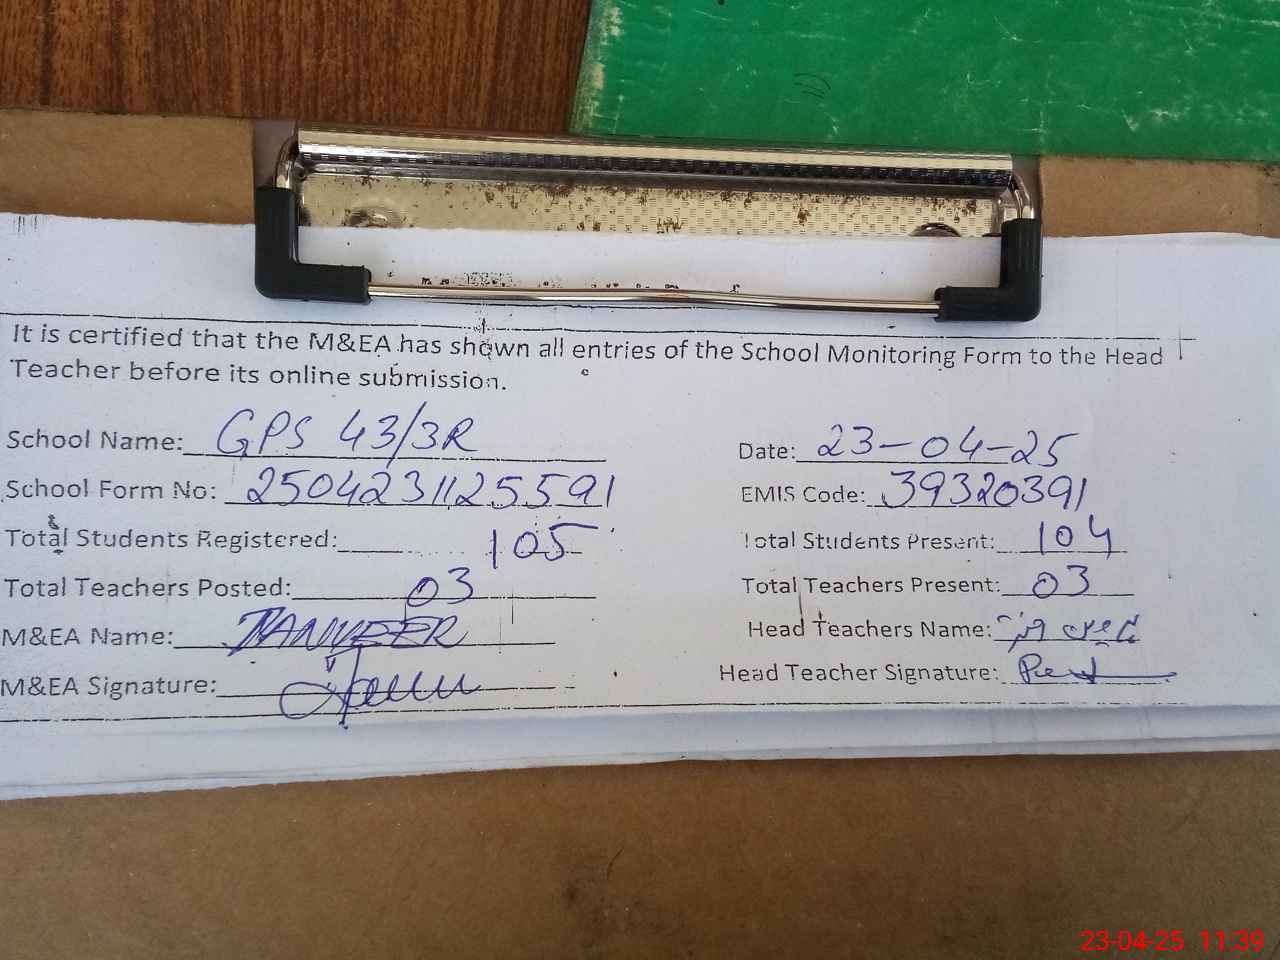 It is certified that the M&EA has shown all entries of the School Monitoring Form to the Head
Teacher before its online submission.
School Name: GPS 43/3R Date: 23-04-25
School Form No: 2504231125591 EMIS Code: 39320391
Total Students Registered: 105 Total Students Present: 104
Total Teachers Posted: 03 Total Teachers Present: 03
M&EA Name: TANVEER Head Teachers Name:
M&EA Signature: Head Teacher Signature:
23-04-25 11:39